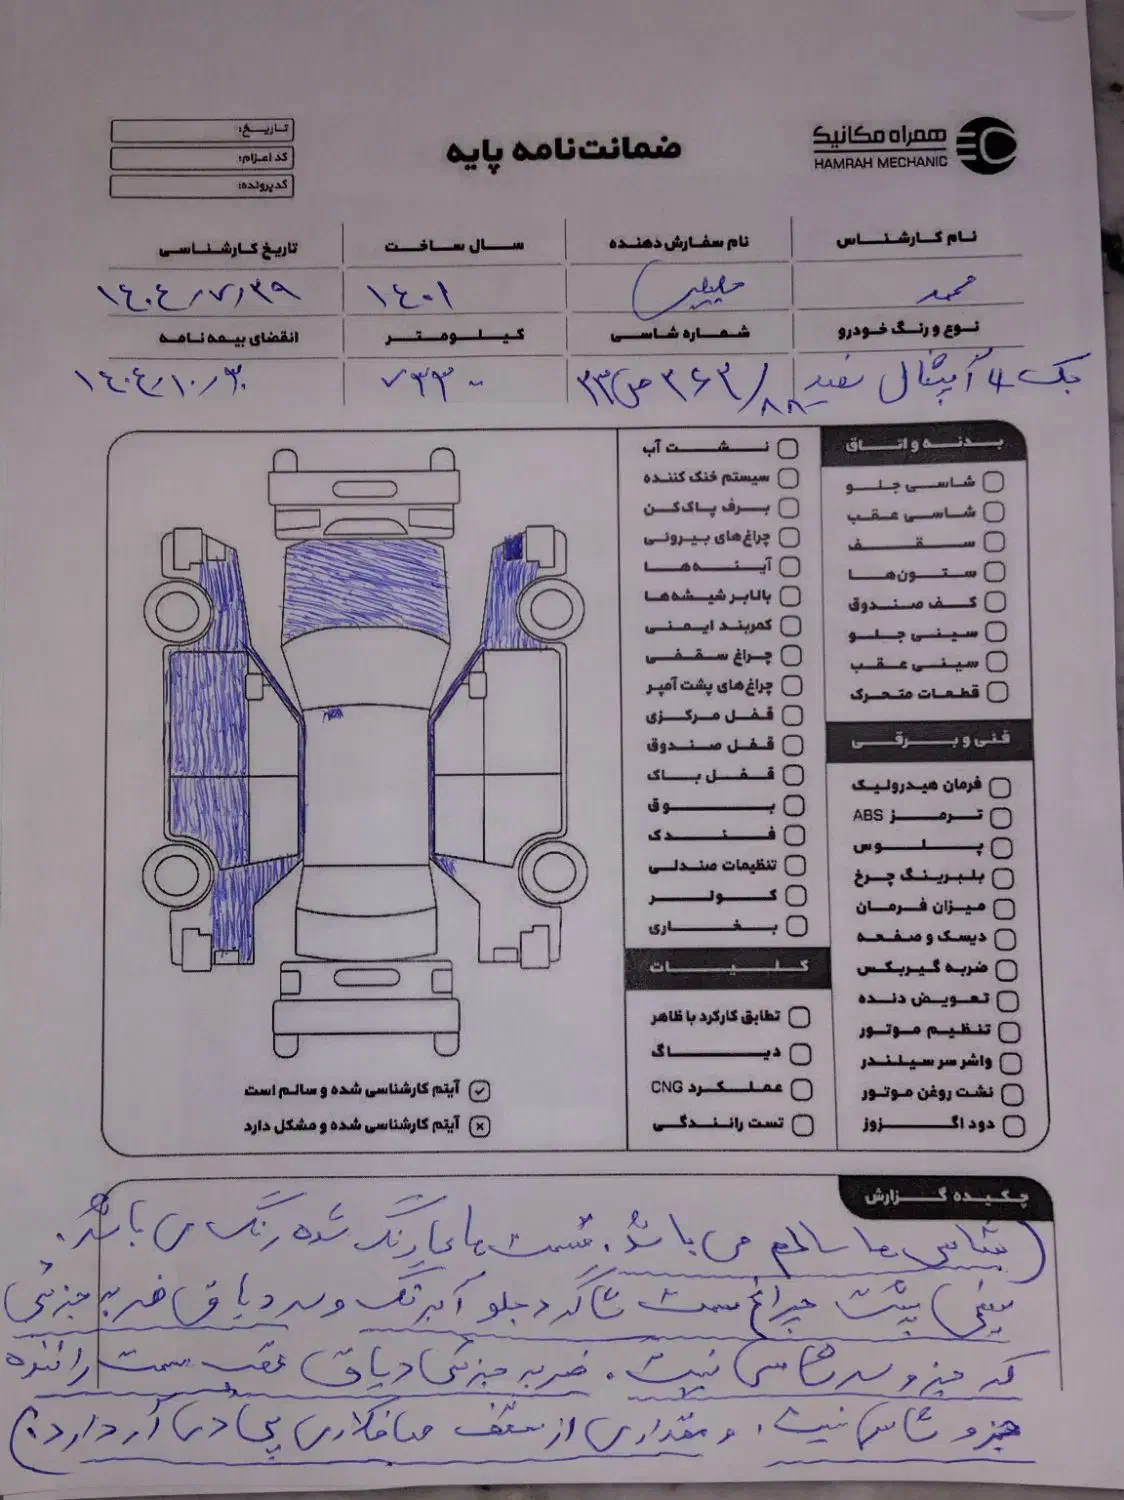 همراه مکانیک
HAMRAH MECHANIC
ضمانت‌نامه پایه
تاریخ:
کد اعزام:
کد پرونده:
نام کارشناس
نام سفارش دهنده
سال ساخت
تاریخ کارشناسی
محمد
۱۴۰۱
۱۴۰۴/۷/۲۹
نوع و رنگ خودرو
شماره شاسی
کیلومتر
انقضای بیمه نامه
جک ۴ آپشنال سفید
۷۳۳۰۰
۱۴۰۴/۱۰/۳۰
بدنه و اتاق
شاسی جلو
شاسی عقب
سقف
ستون‌ها
کف صندوق
سینی جلو
سینی عقب
قطعات متحرک
فنی و برقی
فرمان هیدرولیک
ترمز ABS
پلوس
بلبرینگ چرخ
میزان فرمان
دیسک و صفحه
ضربه گیربکس
تعویض دنده
تنظیم موتور
واشر سر سیلندر
نشت روغن موتور
دود اگزوز
نشت آب
سیستم خنک کننده
برف پاک‌کن
چراغ‌های بیرونی
آینه‌ها
بالابر شیشه‌ها
کمربند ایمنی
چراغ سقفی
چراغ‌های پشت آمپر
قفل مرکزی
قفل صندوق
قفل باک
بوق
فندک
تنظیمات صندلی
کولر
بخاری
کلیات
تطابق کارکرد با ظاهر
دیاگ
عملکرد CNG
تست رانندگی
آیتم کارشناسی شده و سالم است
آیتم کارشناسی شده و مشکل دارد
چکیده گزارش
شاسی ها سالم می باشد. قسمت های رنگ شده رنگ می باشد.
سینی پشت چراغ سمت شاگرد جلو آبرنگ و سر دیاق ضربه جزئی
که جزو سر شاسی نیست. ضربه جزئی دیاق عقب سمت راننده
جزو شاسی نیست. و مقداری از سقف صافکاری پی دی آر دارد.